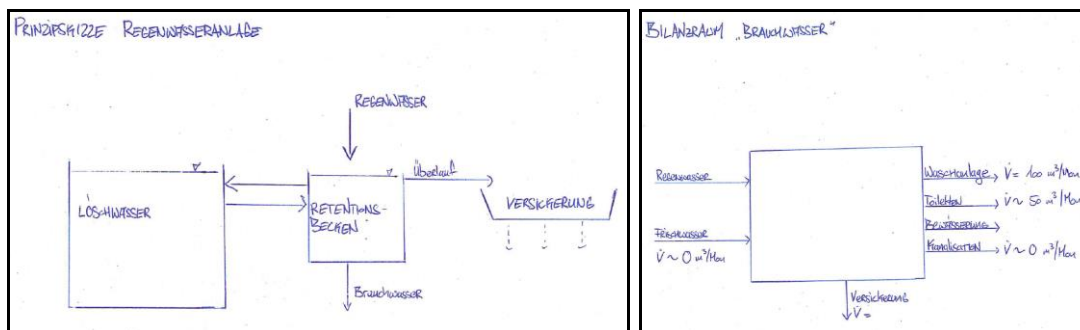 PRINZIPSKIZZE REGENWASSERANLAGE
REGENWASSER
Überlauf
LÖSCHWASSER
RETENTIONS-
BECKEN
VERSICKERUNG
Brauchwasser
BILANZRAUM „BRAUCHWASSER"
Regenwasser
Frischwasser
V̇ ~ 0 m³/Mon
Waschanlage V̇ = 100 m³/Mon
Toiletten V̇ ~ 50 m³/Mon
Bewässerung
Kanalisation V̇ ~ 0 m³/Mon
Versickerung
V̇ =